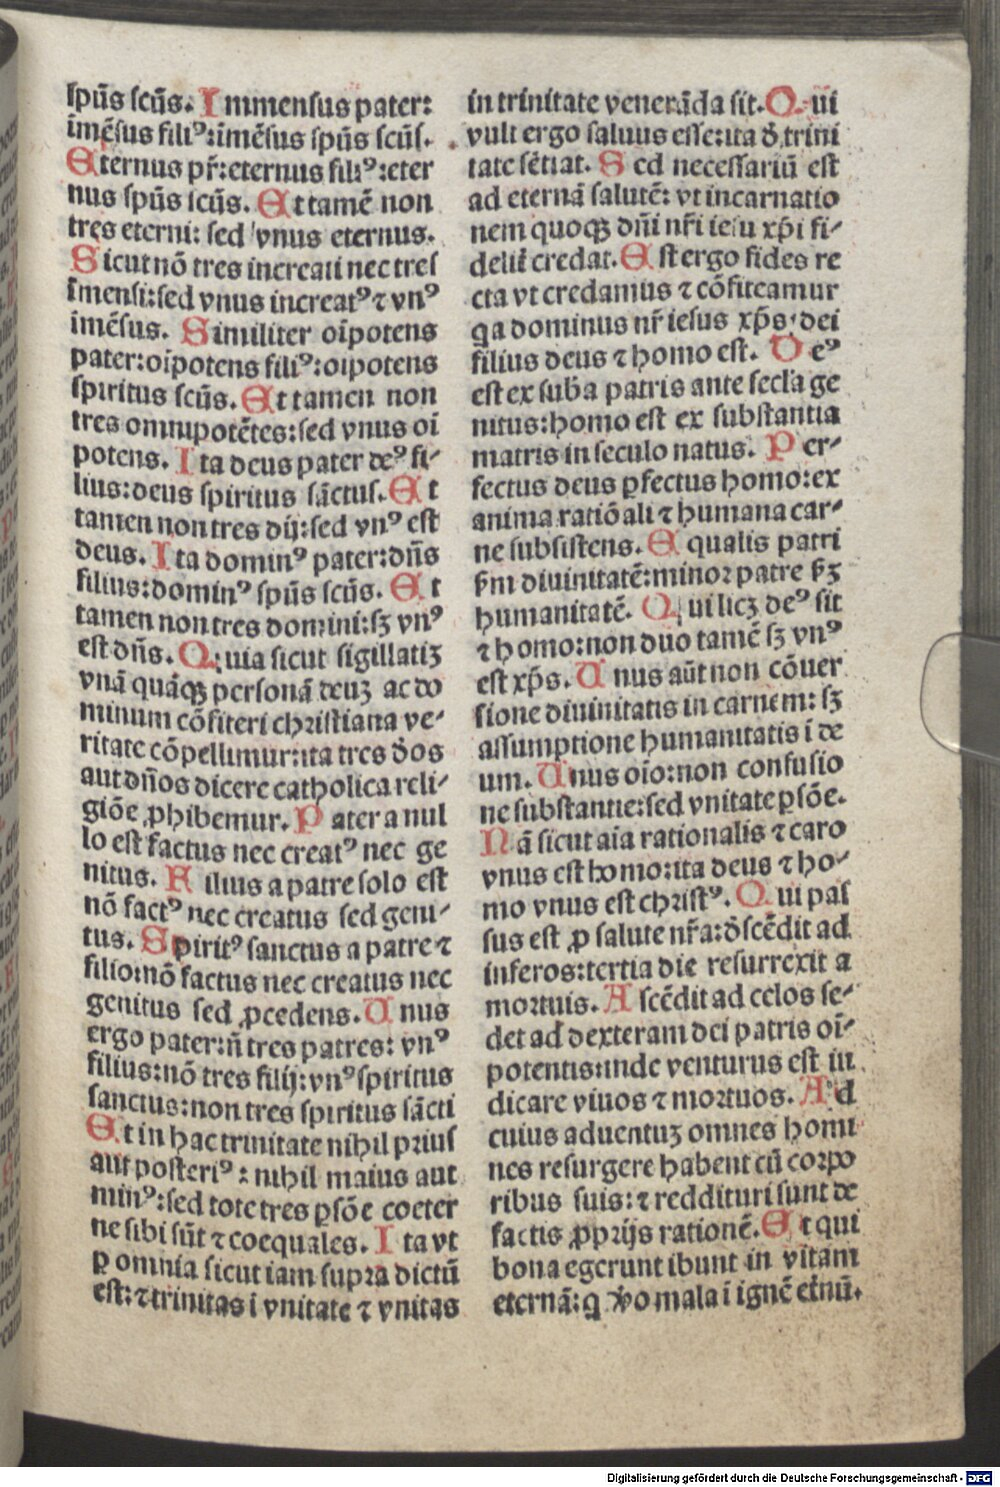 spūs scūs. Immensus pater:
imēsus filiꝰ: imēsus spūs scūs.
Eternus pr̄: eternus filiꝰ: eter
nus spūs scūs. Et tamē non
tres eterni: sed vnus eternus.
Sicut nō tres increati nec tres
īmensi: sed vnus increatꝰ ⁊ vnꝰ
imēsus. Similiter oīpotens
pater: oīpotens filiꝰ: oīpotens
spiritus scūs. Et tamen non
tres omnipotētes: sed vnus oī
potens. Ita deus pater deꝰ fi-
lius: deus spiritus sāctus. Et
tamen non tres dij: sed vnꝰ est
deus. Ita dominꝰ pater: dn̄s
filius: dominꝰ spūs scūs. Et
tamen non tres domini: sꝫ vnꝰ
est dn̄s. Quia sicut sigillatiꝫ
vnā quāqꝫ personā deuꝫ ac do
minum cōfiteri christiana ve-
ritate cōpellimur: ita tres dōs
aut dn̄os dicere catholica reli-
giōe ꝓhibemur. Pater a nul
lo est factus nec creatꝰ nec ge
nitus. Filius a patre solo est
nō factꝰ nec creatus sed geni-
tus. Spiritꝰ sanctus a patre ⁊
filio: nō factus nec creatus nec
genitus sed ꝓcedens. Unus
ergo pater: n̄ tres patres: vnꝰ
filius: nō tres filij: vnꝰ spiritus
sanctus: non tres spiritus sācti
Et in hac trinitate nihil prius
aut posteriꝰ: nihil maius aut
minꝰ: sed tote tres ꝑsōe coeter
ne sibi sūt ⁊ coequales. Ita vt
ꝑ omnia sicut iam supra dictū
est: ⁊ trinitas i vnitate ⁊ vnitas
in trinitate venerāda sit. Qui
vult ergo saluus esse: ita d̄ trini
tate sētiat. Sed necessariū est
ad eternā salutē: vt incarnatio
nem quoqꝫ dn̄i nr̄i iesu xp̄i fi-
delit̄ credat. Est ergo fides re
cta vt credamus ⁊ cōfiteamur
qa dominus nr̄ iesus xp̄s dei
filius deus ⁊ homo est. Deꝰ
est ex sub̄a patris ante secl̄a ge
nitus: homo est ex substantia
matris in seculo natus. Per-
fectus deus ꝑfectus homo: ex
anima ratiōali ⁊ humana car-
ne subsistens. Equalis patri
ẜm diuinitatē: minor patre ẜꝫ
humanitatē. Qui licꝫ deꝰ sit
⁊ homo: non duo tamē sꝫ vnꝰ
est xp̄s. Unus aūt non cōuer
sione diuinitatis in carnem: sꝫ
assumptione humanitatis i de
um. Unus oīo: non confusio
ne substantie: sed vnitate ꝑsōe.
Nā sicut aīa rationalis ⁊ caro
vnus est homo: ita deus ⁊ ho-
mo vnus est christꝰ. Qui pas
sus est ꝓ salute nr̄a: d̄scēdit ad
inferos: tertia die resurrexit a
mortuis. Ascēdit ad celos se-
det ad dexteram dei patris oī-
potentis: inde venturus est iu
dicare viuos ⁊ mortuos. Ad
cuius aduentuꝫ omnes homi
nes resurgere habent cū corpo
ribus suis: ⁊ reddituri sunt de
factis ꝓprijs rationē. Et qui
bona egerunt ibunt in vitam
eternā: q v̄o mala i ignē et̄nū.
Digitalisierung gefördert durch die Deutsche Forschungsgemeinschaft - DFG